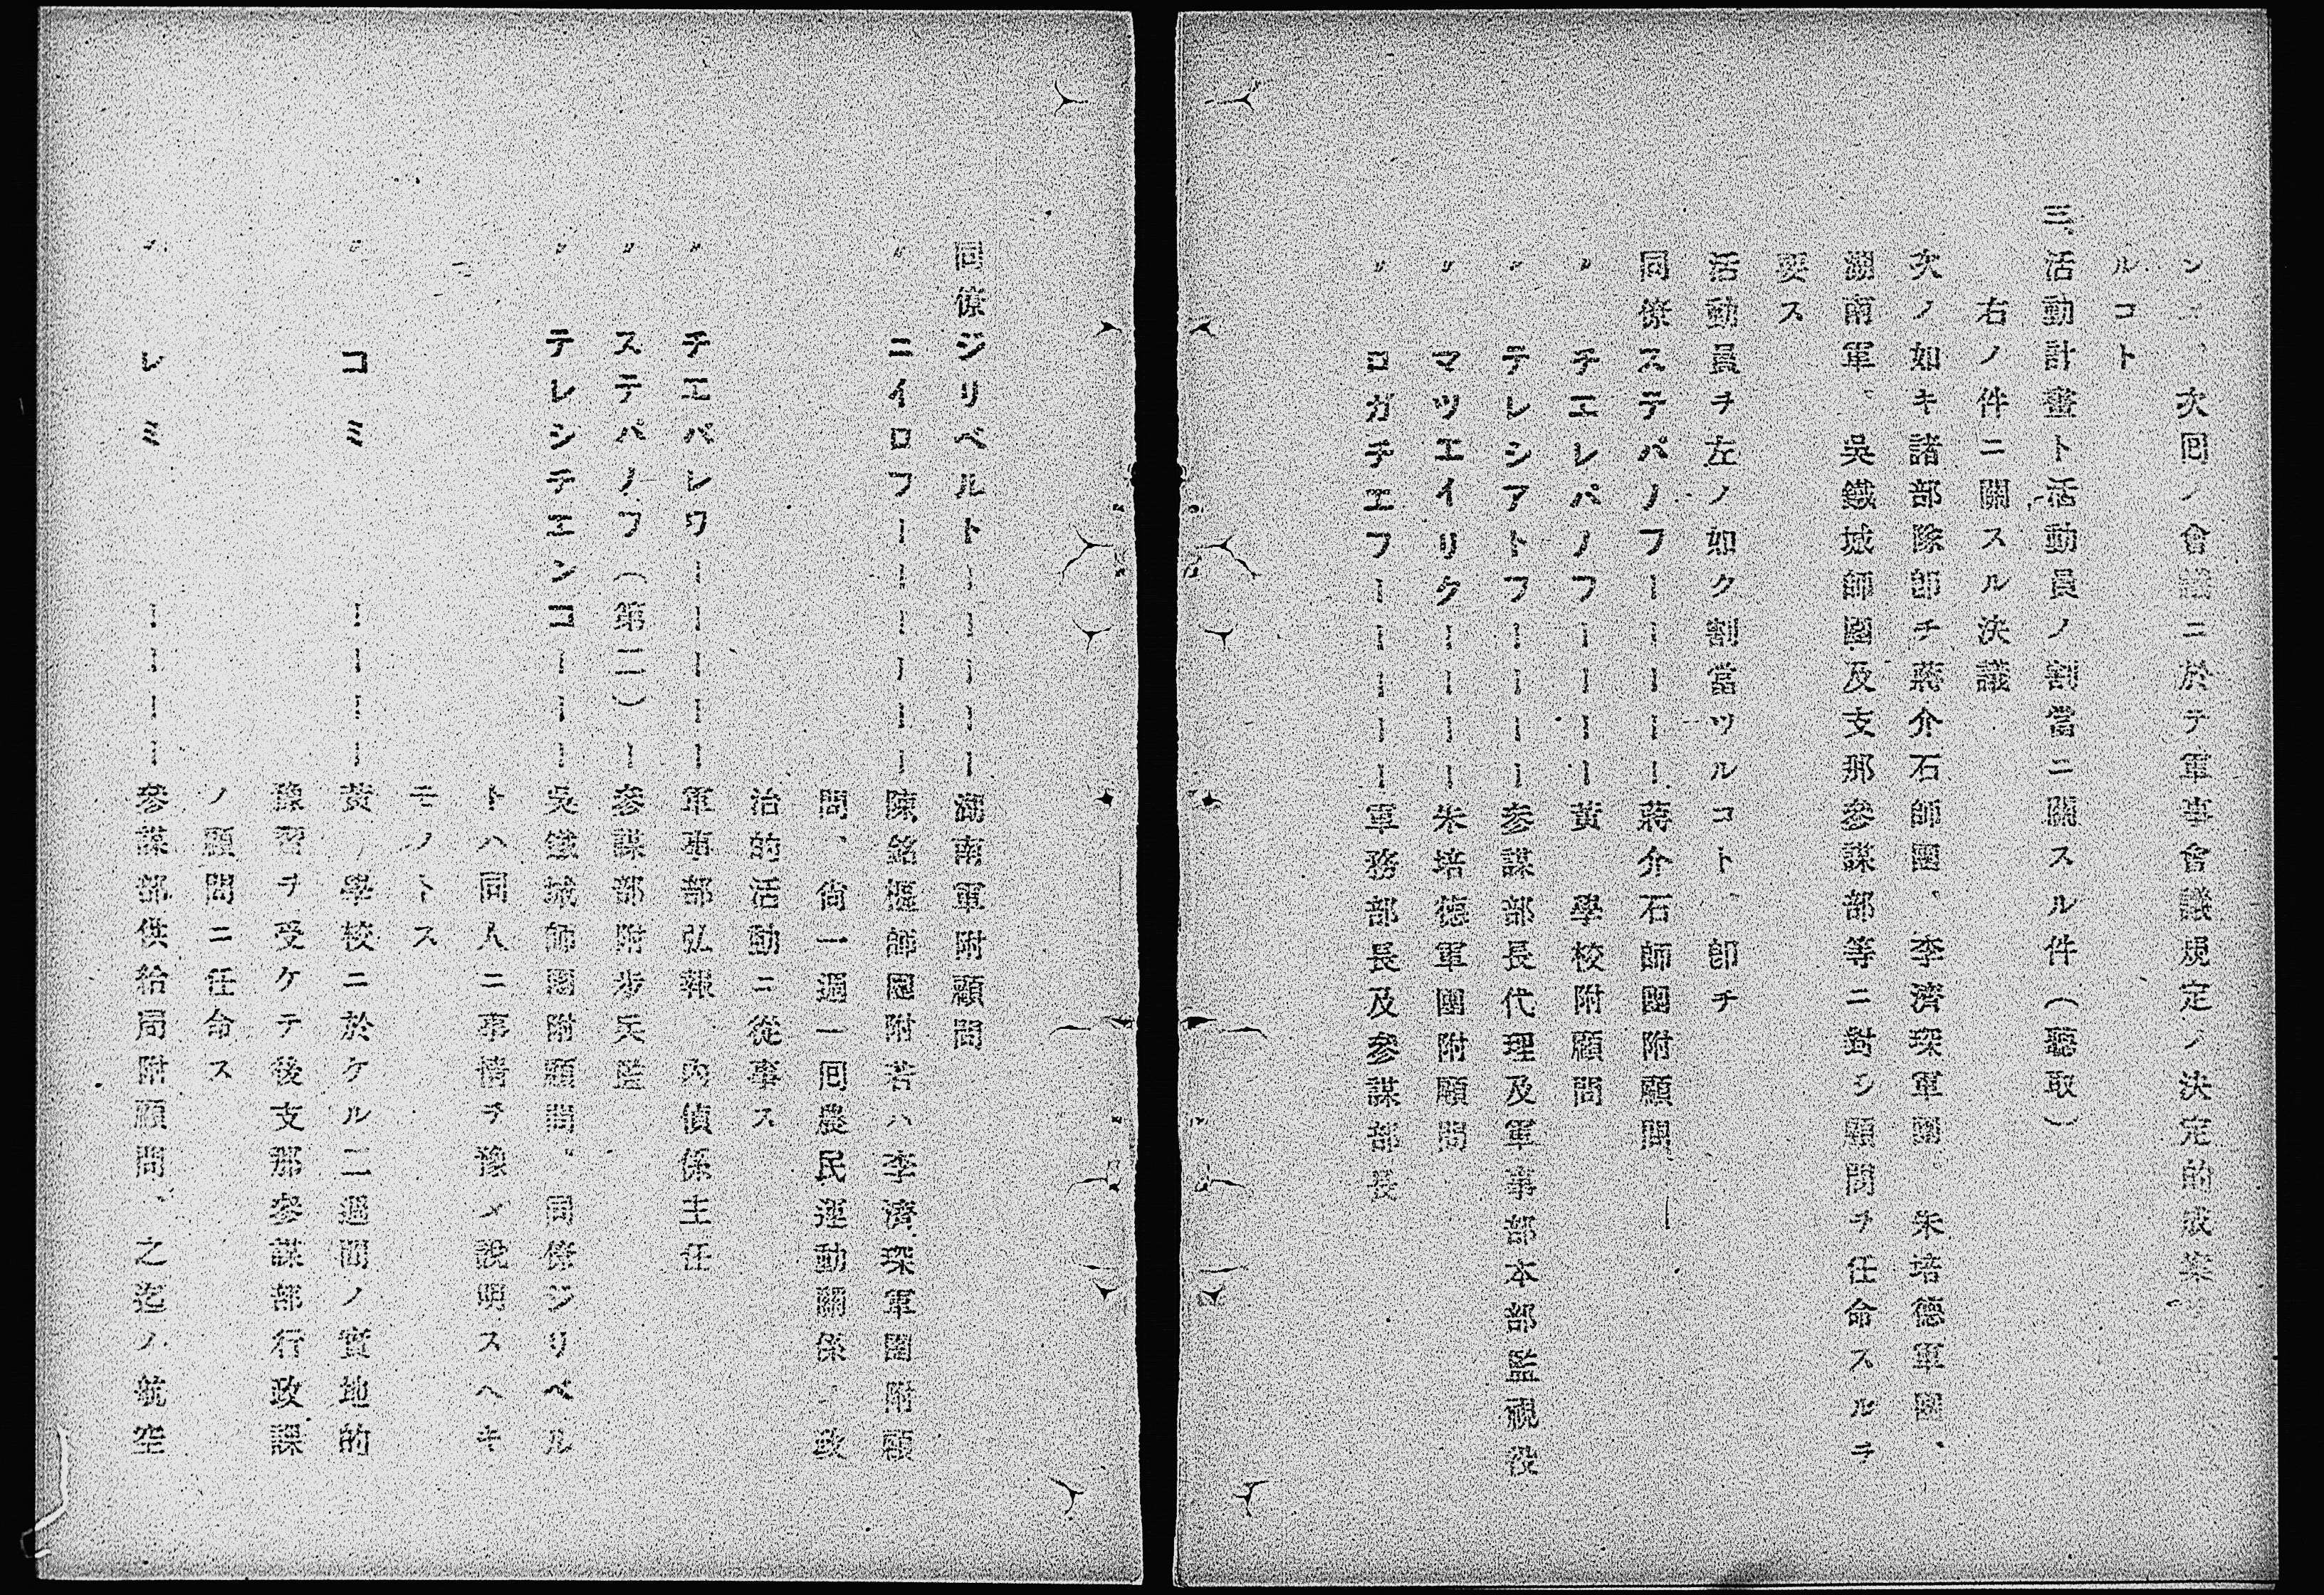 次囘ノ會議ニ於テ軍事會議規定ノ決定的成案ヲ
ルコト
三、活動計畫ト活動員ノ割當ニ關スル件(聽取)
右ノ件ニ關スル決議
次ノ如キ諸部隊卽チ蔣介石師團、李濟琛軍團、朱培德軍團、
湖南軍、吳鐵城師團及支那參謀部等ニ對シ顧問ヲ任命スルヲ
要ス
活動員ヲ左ノ如ク割當ツルコト、卽チ
同僚ステパノフーーーーー蔣介石師團附顧問
〃チエレパノフーーーー黃 學校附顧問
〃テレシアトフーーーー參謀部長代理及軍事部本部監視役
〃マツエイリクーーーー朱培德軍團附顧問
〃ロガチエフーーーーー軍務部長及參謀部長
同僚ジリベルトーーーーー湖南軍附顧問
〃ニイロフーーーーーー陳銘樞師團附若ハ李濟琛軍團附顧
問、尙一週一囘農民運動關係ニ政
治的活動ニ從事ス
〃チエバレワーーーーー軍事部弘報、內偵係主任
〃ステパノフ(第二)ーー參謀部附步兵監
〃テレシチエンコーーー吳鐵城師團附顧問、同僚ジリベル
トハ同人ニ事情ヲ豫メ說明スヘキ
モノトス
〃コミーーーー黃 學校ニ於ケル二週間ノ實地的
豫習ヲ受ケテ後支那參謀部行政課
ノ顧問ニ任命ス
〃レミーーーー參謀部供給局附顧問、之迄ノ航空